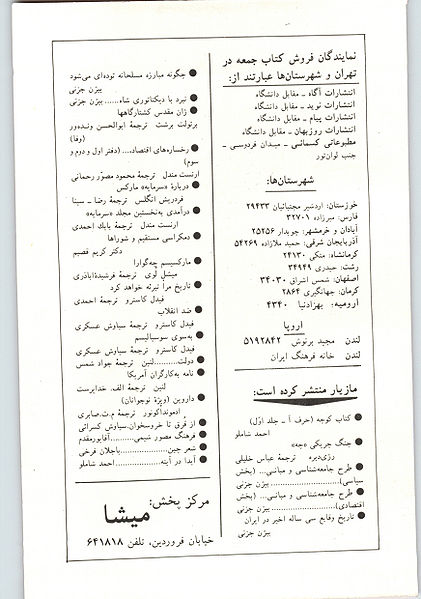 نمایندگان فروش کتاب جمعه در
تهران و شهرستان‌ها عبارتند از:
انتشارات آگاه ـ مقابل دانشگاه
انتشارات نوید ـ مقابل دانشگاه
انتشارات پیام ـ مقابل دانشگاه
انتشارات روزبهان ـ مقابل دانشگاه
مطبوعاتی کسمائی ـ میدان فردوسی ـ
جنب لوان‌تور
شهرستان‌ها:
خوزستان: اردشیر مجتبائیان ۲۹۴۳۳
فارس: میرزاده ۳۲۷۰۱
آبادان و خرمشهر: جوبدار ۲۵۲۵۶
آذربایجان شرقی: حمید ملازاده ۵۴۲۶۹
کرمانشاه: متکی ۲۴۱۳۰
رشت: حیدری ۳۴۹۴۹
اصفهان: شمس اشراق ۳۴۰۳۰
کرمان: جهانگیری ۲۸۶۴
ارومیه: بهزادنیا ۴۳۴۰
اروپا
لندن مجید برنوش ۵۱۹۲۸۴۲
لندن خانه فرهنگ ایران
مازیار منتشر کرده است:
● کتاب کوچه (حرف آ ـ جلد اوّل)
احمد شاملو
● جنگ چریکی «چه»
رژی‌دبره ترجمهٔ عباس خلیلی
● طرح جامعه‌شناسی و مبانی... (بخش
سیاسی)..........بیژن جزنی
● طرح جامعه‌شناسی و مبانی... (بخش
اقتصادی)..........بیژن جزنی
● تاریخ وقایع سی ساله اخیر در ایران
بیژن جزنی
● چگونه مبارزه مسلحانه توده‌ای می‌شود
بیژن جزنی
● نبرد با دیکتاتوری شاه......بیژن جزنی
● ژان مقدس کشتارگاهها
برتولت برشت ترجمهٔ ابوالحسن ونده‌ور
(وفا)
● رخساره‌های اقتصاد... (دفتر اول و دوم و
سوم)
ارنست مندل ترجمهٔ محمود مصوّر رحمانی
● دربارهٔ «سرمایه» مارکس
فردریش انگلس ترجمهٔ رضا ـ سینا
● درآمدی به‌نخستین مجلد «سرمایه»
ارنست مندل ترجمهٔ بابک احمدی
● دمکراسی مستقیم و شوراها
دکتر کریم قصیم
● مارکسیسم چه‌گوارا
میشل لُوی ترجمهٔ فرشیدهٔ‌اباذری
● تاریخ مرا تبرئه خواهد کرد
فیدل کاسترو ترجمهٔ احمدی
● ضد انقلاب
فیدل کاسترو ترجمهٔ سیاوش عسکری
● به‌سوی سوسیالیسم
فیدل کاسترو ترجمهٔ سیاوش عسکری
● دولت..........لنین ترجمهٔ جواد شمس
● نامه به‌کارگران آمریکا
لنین ترجمهٔ الف. خداپرست
● داروین (ویژهٔ نوجوانان)
ادموند‌اُکونور ترجمهٔ م.ت.صابری
● از قُرق تا خروسخوان.سیاوش کسرائی
● فرهنگ مصور شیمی..........آقاپورمقدم
● شعر چین..........باجلان فرخی
● آیدا در آینه..........احمد شاملو
مرکز پخش:
میشا
خیابان فروردین، تلفن ۶۴۱۸۱۸